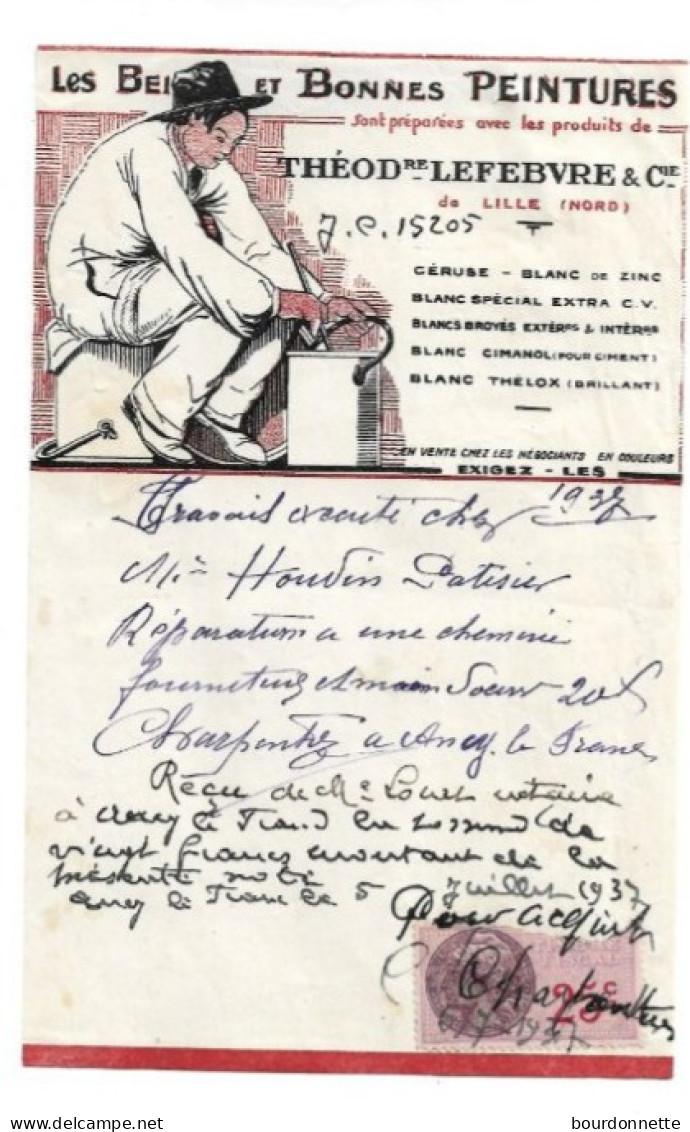 Les Be et Bonnes Peintures
sont préparées avec les produits de
THÉOD^RE LEFEBVRE & C^IE
de LILLE (NORD)
J.C. 15205
CÉRUSE - BLANC DE ZINC
BLANC SPÉCIAL EXTRA C.V.
BLANCS BROYÉS EXTÉR^RS & INTÉR^RS
BLANC CIMANOL (POUR CIMENT)
BLANC THÉLOX (BRILLANT)
EN VENTE CHEZ LES NÉGOCIANTS EN COULEURS
EXIGEZ - LES
1937
Travais executé chez
Houdin Patisier
Réparation a une cheminé
fourniture et main 20
Charpentier a Ancy le Franc
Reçu de M^e notaire
à Ancy le Franc la somme de
vingt francs montant de la
présente note
Ancy le Franc le 5 Juillet 1937
Pour acquit
Charpentier
25 c
5/7 1937
bourdonnette